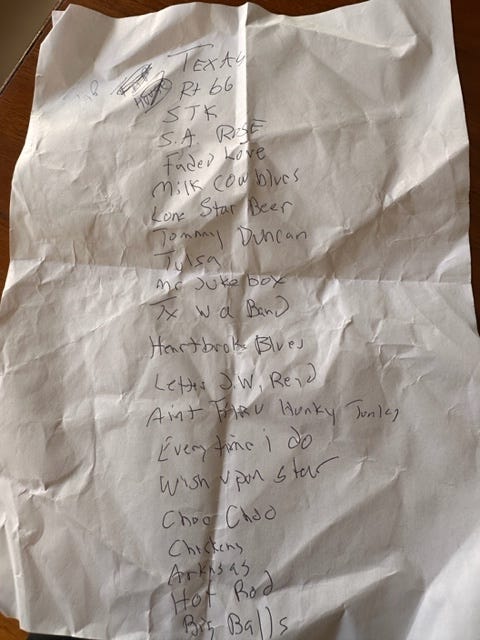 TEXAS
Rt 66
STK
S.A. ROSE
Faded Love
Milk cow blues
Lone Star Beer
Tommy Duncan
Tulsa
mr Juke box
Tx w a Band
Heartbroke Blues
Letter J.W. Read
Aint THRU Hunky Tonkin
Everytime i do
Wish upon star
Choo Choo
Chickens
Arkansas
Hot Rod
Big Balls